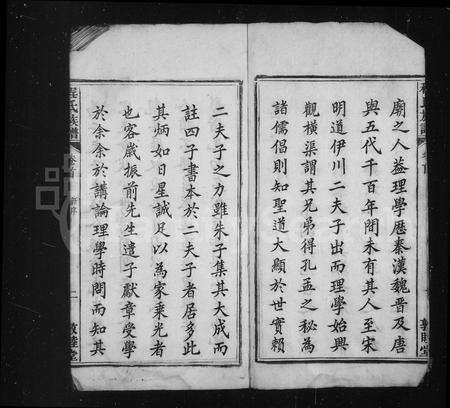 廟之人蓋理學歷秦漢魏晉及唐
與五代千百年間未有其人至宋
明道伊川二夫子出而理學始興
觀橫渠謂其兄弟得孔孟之秘為
諸儒倡則知聖道大顯於世實賴
二夫子之力雖朱子集其大成而
註四子書本於二夫子者居多此
其炳如日星誠足以為家乘光者
也客歲振前先生遣子獻章受學
於余余於講論理學時間而知其
程氏族譜
卷首
新序
二
敦睦堂
敦睦堂